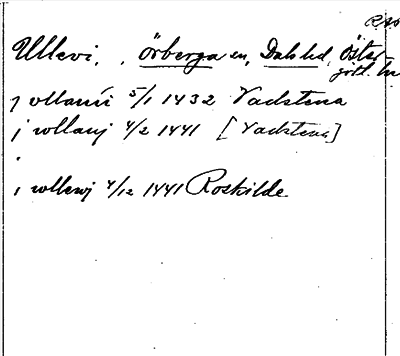 RAO
Ullevi, , Örberga sn, Dals hd, Öster-
götl. ln
j vllauii 5/1 1432 Vadstena
j wllauj 4/2 1441 [Vadstena]
i wllewj 4/12 1441 Roskilde